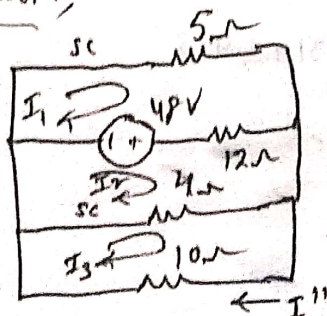 5Ω
sc
I₁ 48V
- +
12Ω
I₂ 4Ω
sc
I₃ 10Ω
← I"